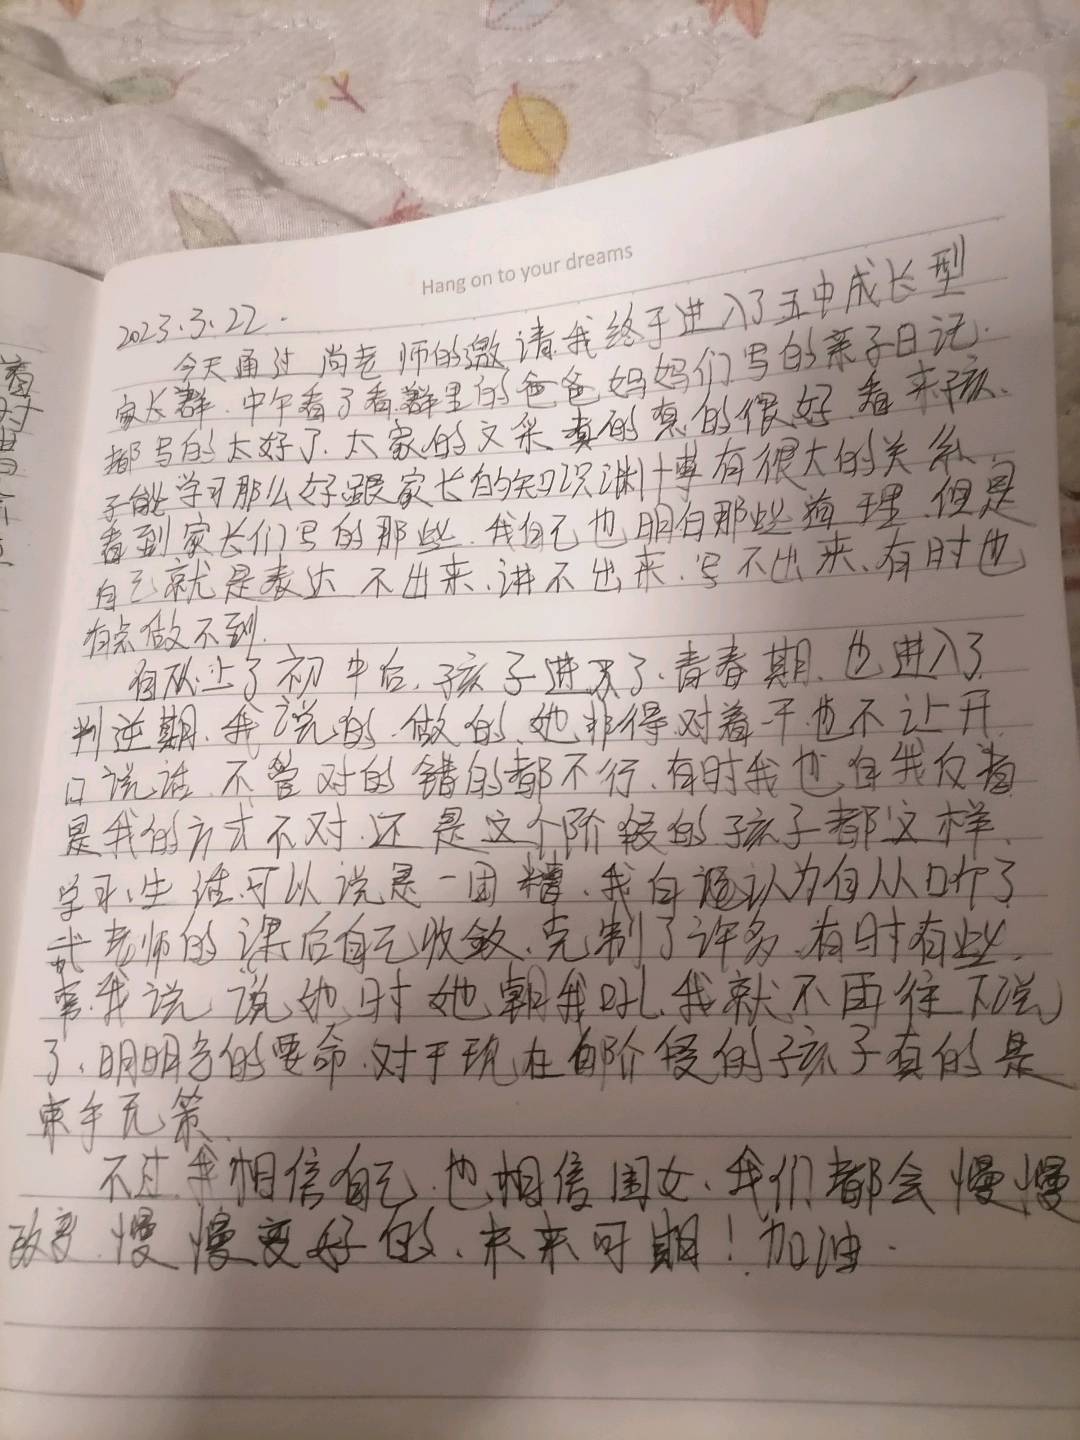 Hang on to your dreams
2023.3.22.
今天通过尚老师的邀请.我终于进入了五中成长型
家长群.中午看了看群里的爸爸妈妈们写的亲子日记.
都写的太好了.大家的文采真的真的很好.看来孩、
子能学习那么好跟家长的知识渊博有很大的关系.
看到家长们写的那些.我自己也明白那些道理.但是
自己就是表达不出来、讲不出来.写不出来、有时也
有点做不到.
自从上了初中后.孩子进入了、青春期.也进入了
判逆期.我说的.做的.她非得对着干也不让开
口说话.不管对的错的都不行.有时我也自我反省
是我的方式不对.还是这个阶段的孩子都这样.
学习、生活.可以说是一团糟.我自认为自从听了
老师的课后自己收敛、克制了许多.有时有些.
事.我说说她时她朝我吼.我就不再往下说
了、明明气的要命.对于现在阶段的孩子真的是
束手无策.
不过.我相信自己.也相信闺女、我们都会慢慢
改变.慢慢变好的、未来可期！加油.